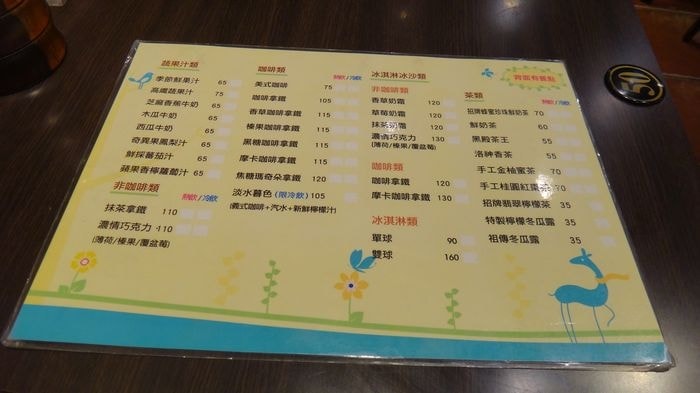 蔬果汁類
季節鮮果汁 65
高纖蔬果汁 75
芝麻香蕉牛奶 65
木瓜牛奶 65
西瓜牛奶 65
奇異果鳳梨汁 65
鮮採蕃茄汁 65
蘋果香檸蘿蔔汁 65
非咖啡類 熱飲/冷飲
抹茶拿鐵 110
濃情巧克力 110
(薄荷/榛果/覆盆莓)
咖啡類 熱飲/冷飲
美式咖啡 75
咖啡拿鐵 105
香草咖啡拿鐵 115
榛果咖啡拿鐵 115
黑糖咖啡拿鐵 115
摩卡咖啡拿鐵 115
焦糖瑪奇朵拿鐵 120
淡水暮色 (限冷飲) 105
(義式咖啡+汽水+新鮮檸檬汁)
冰淇淋冰沙類
非咖啡類
香草奶霜 120
草莓奶霜 120
抹茶奶霜 120
濃情巧克力 130
(薄荷/榛果/覆盆莓)
咖啡類
咖啡拿鐵 120
摩卡咖啡拿鐵 130
冰淇淋類
單球 90
雙球 160
背面有餐點
茶類 熱飲/冷飲
招牌蜂蜜珍珠鮮奶茶 70
鮮奶茶 60
黑殿茶王 55
洛神香茶 55
手工金柚蜜茶 70
手工桂圓紅棗茶 70
招牌翡翠檸檬茶 35
特製檸檬冬瓜露 35
祖傳冬瓜露 35
50